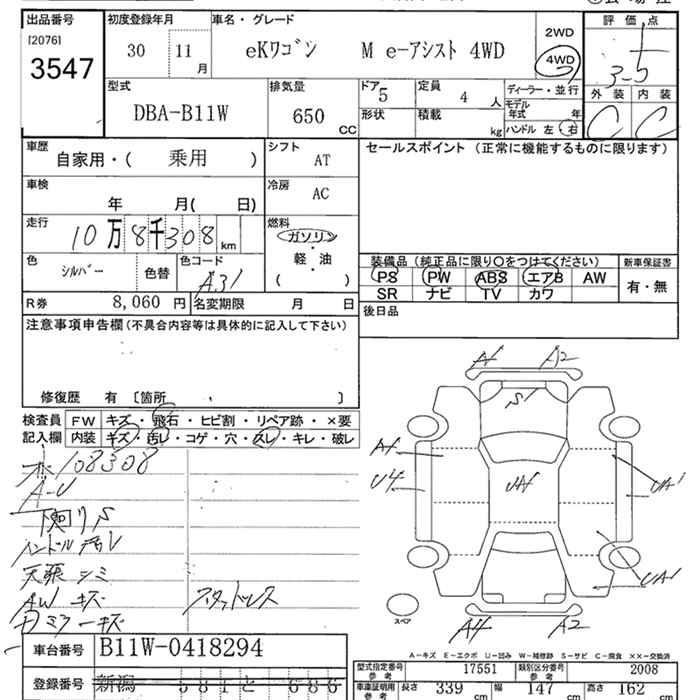 出品番号 初度登録年月 車名・グレード 評価点
[2076]
3547
30 11月 eKワゴン M e-アシスト 4WD 2WD 4WD 3-5
外装 内装
C C
型式 排気量 ドア 定員 ディーラー・並行
DBA-B11W 650 CC 5 4 人 モデル年式 年
形状 積載 kg ハンドル 左 右
車歴 自家用・( 乗用 ) シフト AT セールスポイント (正常に機能するものに限ります)
車検 年 月( 日) 冷房 AC
走行 10万8千308 km 燃料 ガソリン・軽・油 ( )
装備品 (純正品に限り○をつけてください) 新車保証書
色 シルバー 色替 色コード A31
PS PW ABS エアB AW 有・無
SR ナビ TV カワ
R券 8,060 円 名変期限 月 日 後日品
注意事項申告欄 (不具合内容等は具体的に記入して下さい)
修復歴 有 〔箇所 〕
検査員記入欄 FW キズ・飛石・ヒビ割・リペア跡・×要
内装 キズ・汚レ・コゲ・穴・スレ・キレ・破レ
108308
A-U
下廻りS
ハンドル汚レ
天張シミ
AWキズ スタッドレス
ミラーキズ
A1 A2
S1
A1
U4 UA1 UA1
UA1
スペア A2
A-キズ E-エクボ U-凹み W-補修跡 S-サビ C-腐食 ××-交換済
車台番号 B11W-0418294
型式指定番号参考 17551 類別区分番号参考 2008
登録番号 新潟 581 と 686
車庫証明用参考 長さ 339 cm 幅 147 cm 高さ 162 cm